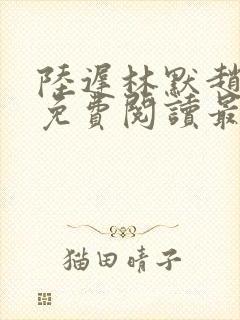 陸遲林默趙
免費閱讀最
猫田晴子